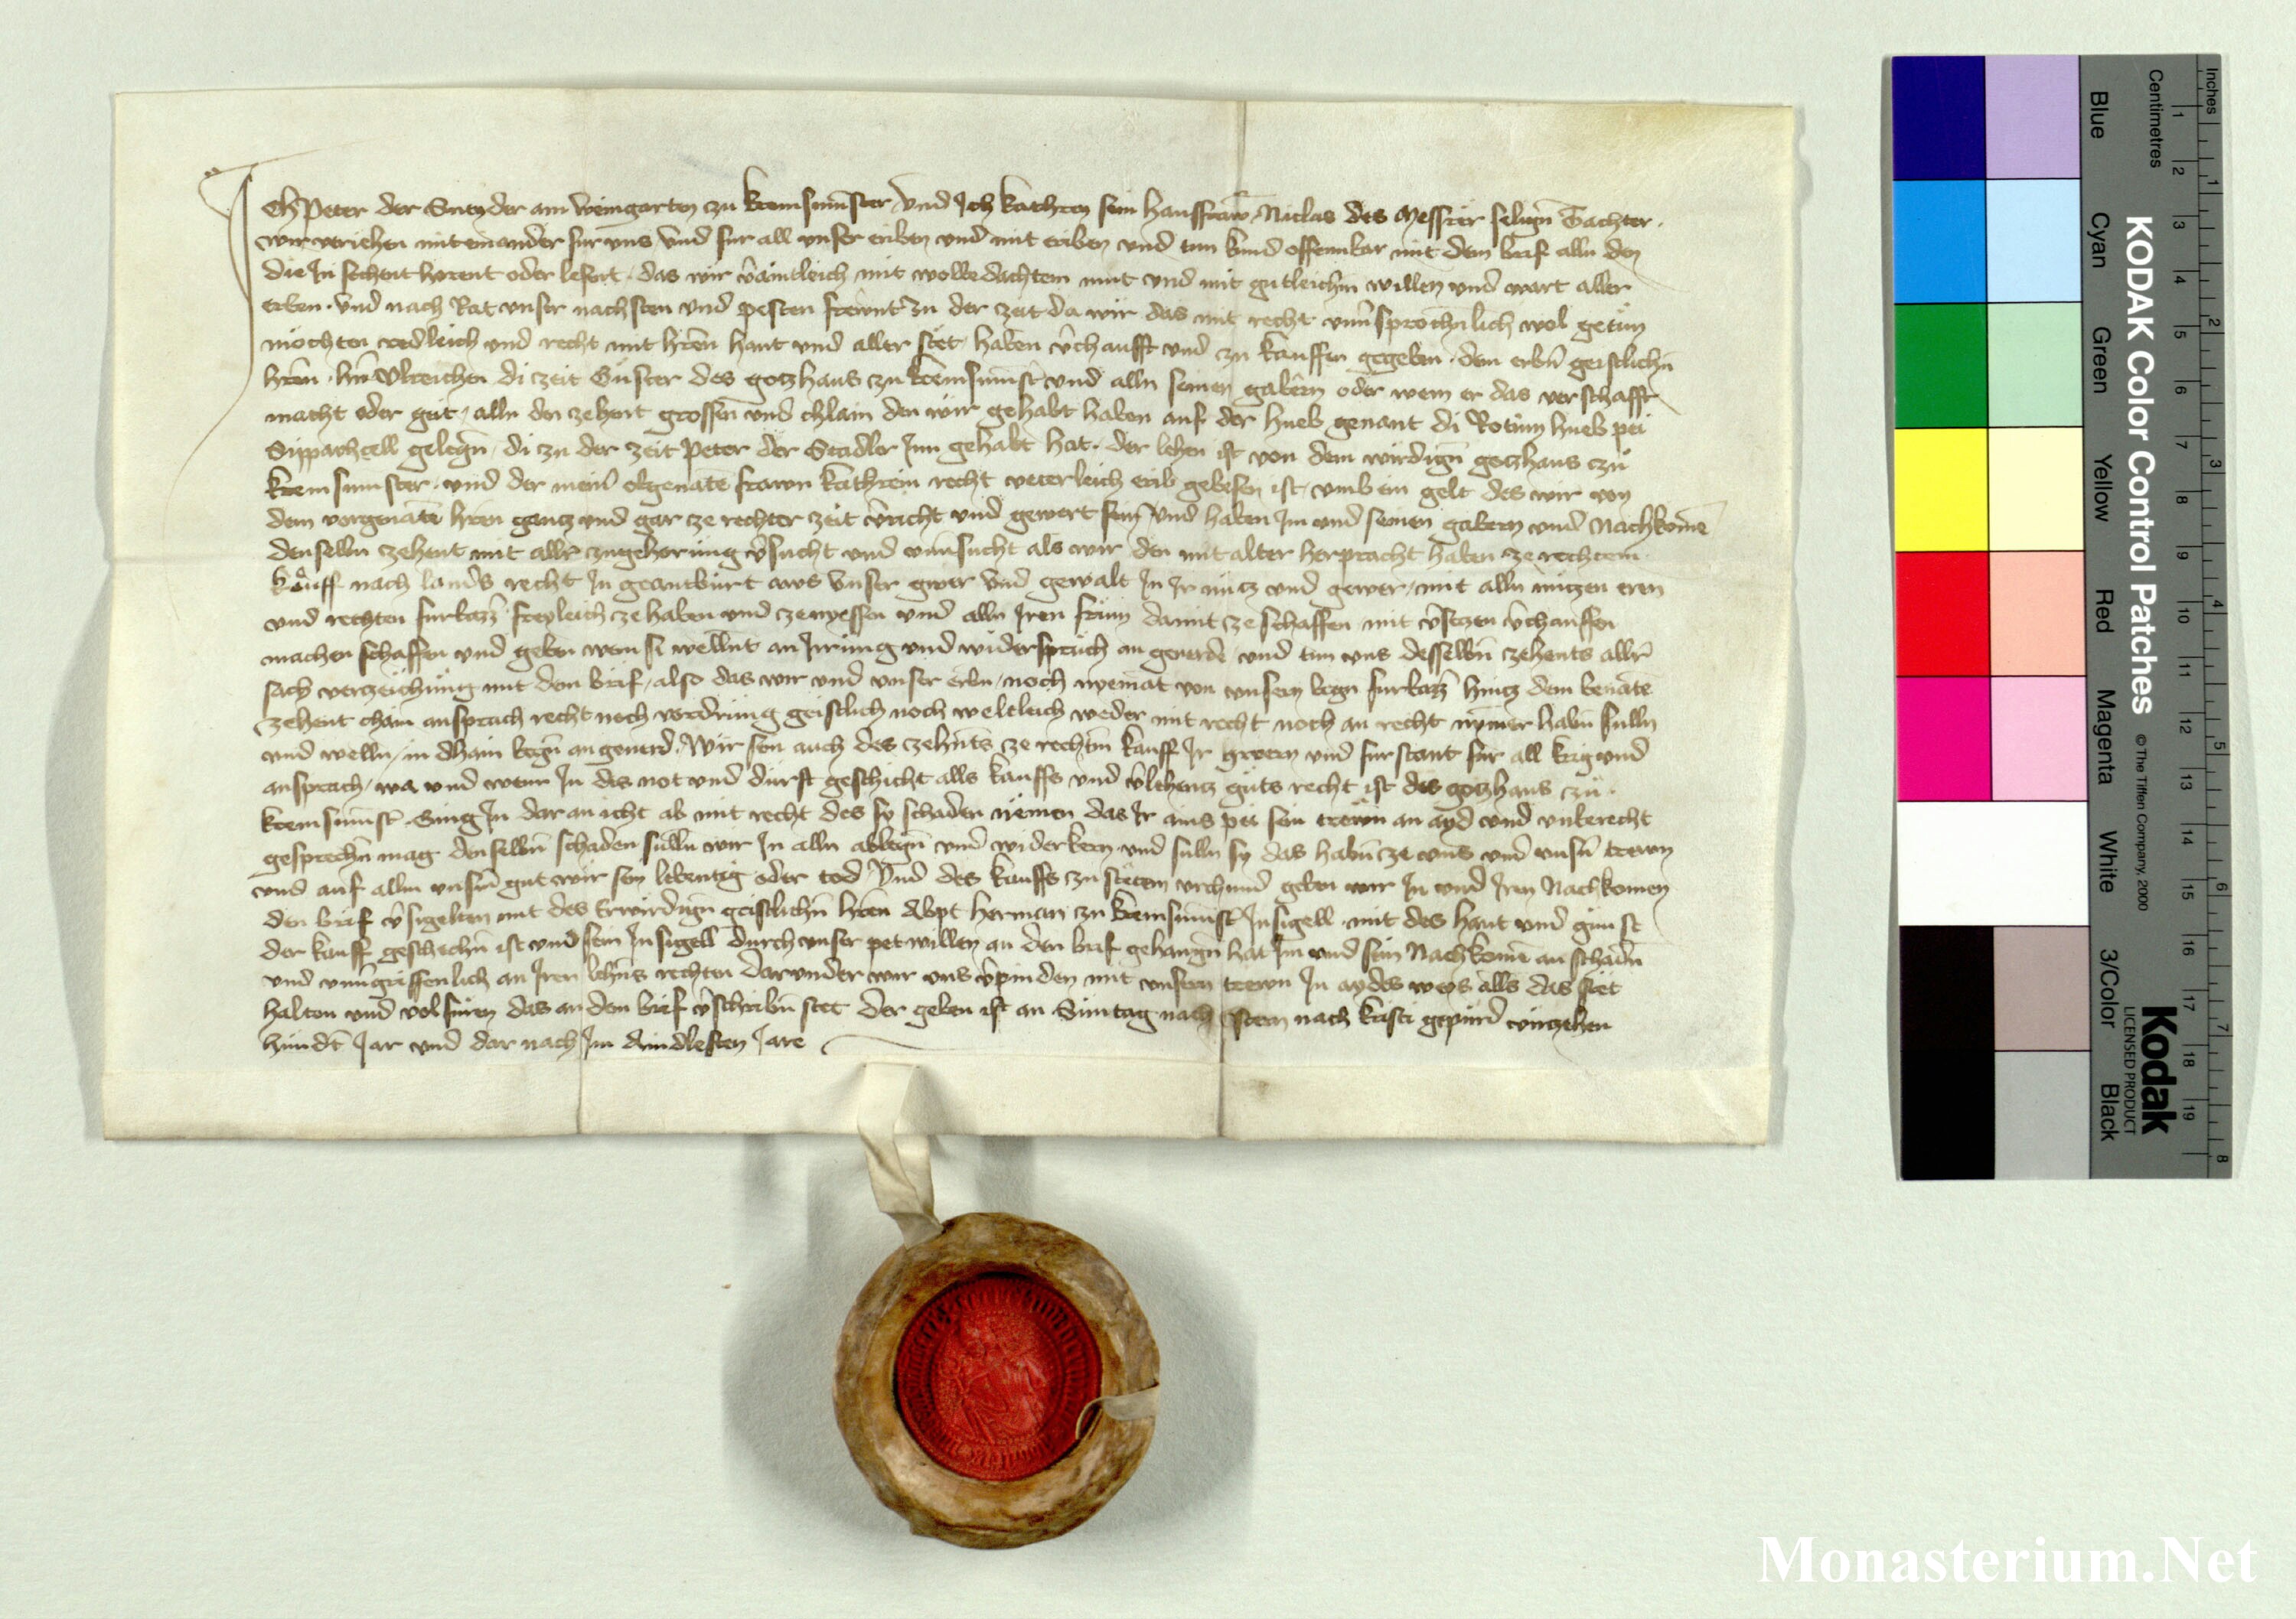 Ich Peter der Snyder am Weingarten zu kremsmunster und Ich kathrey sein hausfraw Niclas des Messrer seligñ Tachter
wir veriehen miteinander fur uns und fur all unser eriben und mit eriben und tun kund offennbar mit dem brief alln den
die In sehent horent oder lesent das wir v̂aintleich mit wolbedachtem mut und mit gutleichm willen und wart aller
erben und nach Rat unser nachsten und pesten frewnt zu der zeit da wir das mit recht unu̇sprochnlich wol getun
mochten redleich und recht mit hren hant und aller stet haben v̂chaufft und zu kauffen gegeben dem erbñ geistlichñ
hren hñ Ulreichen di zeit Guster des gotzhaus zu kremsmunst̄ und alln seinen gabern oder wem er das verschafft
macht oder geit alln den zehent grossen und chlain den wir gehabt haben auf der hueb genant di Rotinn hueb pei
Sippachcell gelegñ di zu der zeit Peter der Stadler Inn gehabt hat der lehen ist von dem wirdigñ gotzhaus czu
kremsmunster und der meiñ obgenātē frawn kathrein recht veterleich erib gebesen ist umb ein gelt des wir von
dem vorgenātē hren gantz und gar ze rechter zeit v̂richt und gewert sein und haben Im und seinen gabern und Nachkomē
denselbn zehent mit allr̄ zugehorung v̂sucht und unu̇sucht als wir den mit alter herpracht haben ze rechtem
kauff nach lands recht In geantburt aws unser gwer und gewalt In Ir nutz und gewer mit alln nutzen eren
und rechten furbazz̄ freyleich ze haben und ze nyessen und alln Iren frum damit ze schaffen mit v̂seczen v̂chauffen
machen schaffen und geben wem si wellnt an Irrung und widerspruch an geuerde und tun uns desselbñ zehents allr̄
sach verzeichung mit dem brief also das wir und unser erbn noch nyemāt von unsern wegn furbazz̄ hintz dem benātē
zehent chain ansprach recht noch vordrung geistlich noch weltleich weder mit recht noch an recht nymer habn sulln
und welln in dhain wegñ an geuerd Wir sein auch des zehents ze rechtm kauff Ir gwern und furstant fur all krig und
ansprach wa und wenn In des not und durft geschicht alls kauffs und v̂lehentz guts recht ist des gotzhaus czu
kremsmunst̄ Ging In dar an icht ab mit recht des sy schaden nemen das Ir ains pei sein trewn an ayd und unberecht
gesprechn mag denselbñ schaden sulln wir In alln ablegñ und widerkern und sulln sy das habñ cze uns und unsñ trewn
und auf allm unsm̄ gut wir sein lebentig oder tod Und des kauffs zu stetem urchund geben wir In und Iren Nachkomen
den brief v̂sigelten mit des Erwirdigñ geistlichñ hren Abpt herman zu kremsmunst̄ Insigell mit des hant und gunst
der kauff geschechñ ist und sein Insigell durch unser pet willen an den brief gehangñ hat Im und sein Nachkomē an schadñ
und unu̇griffenlich an Iren lehñs rechten darunder wir uns v̂pinden mit unsern trewn In aydes weys alls das stet
halten und volfuren das an dem brief v̂schribñ stet der geben ist an Suntag nach Ostern nach kristi gepurd virzehen
hundt̄ Jar und dar nach Im Aindlesten Jare
Inches
Centimetres
KODAK Color Control Patches © The Tiffen Company, 2000
Kodak
LICENSED PRODUCT
Blue Cyan Green Yellow Red Magenta White 3/Color Black
1 2 3 4 5 6 7 8 9 10 11 12 13 14 15 16 17 18 19
1 2 3 4 5 6 7 8
Monasterium.Net